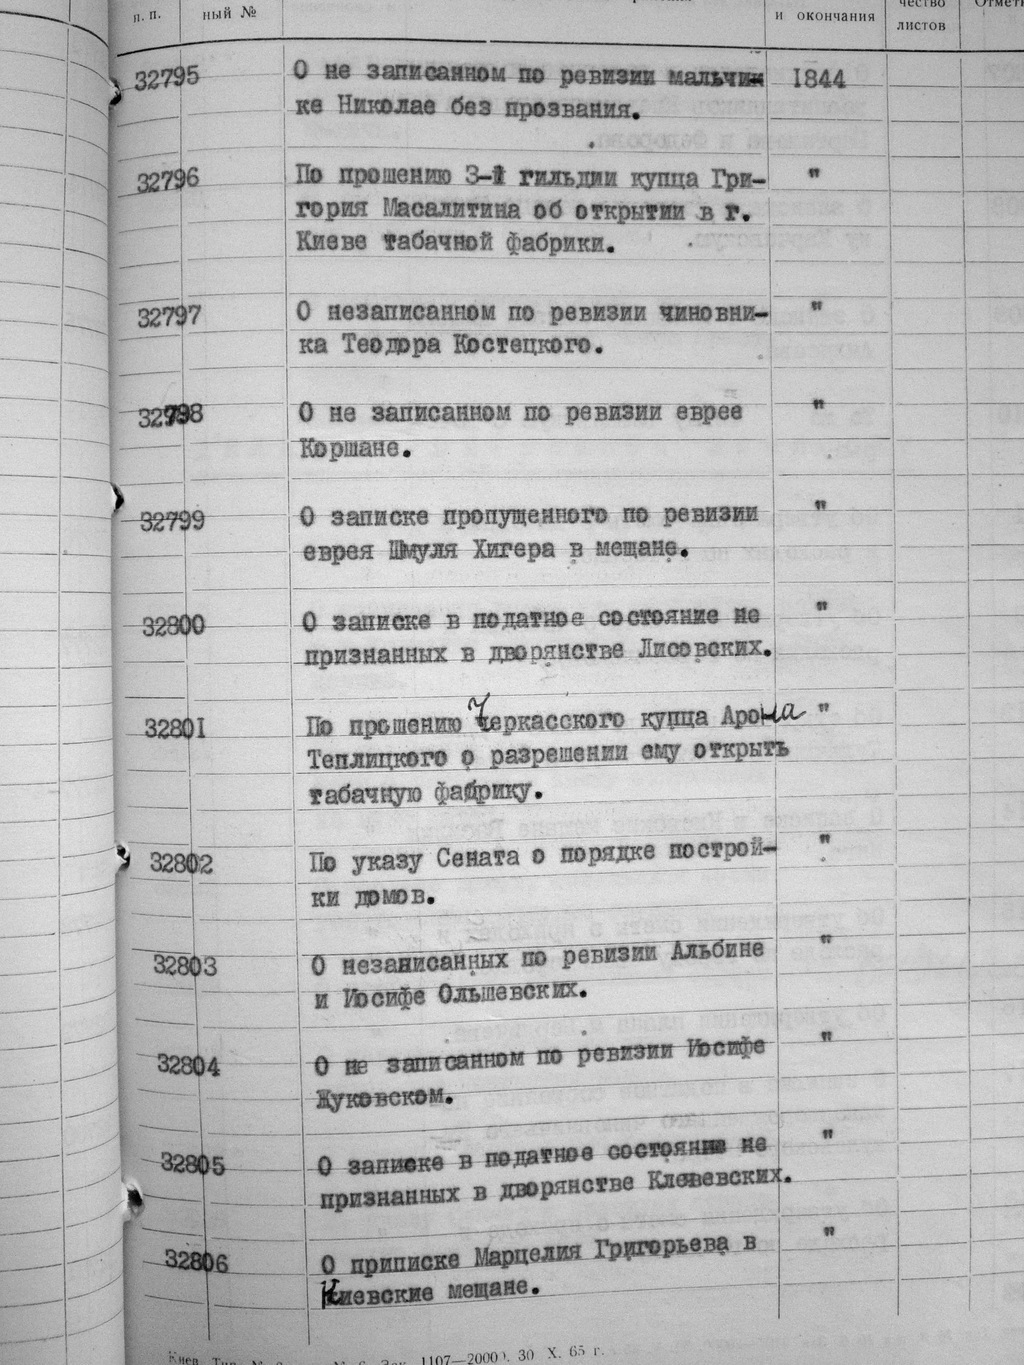 п. п.
ный №
и окончания
чество
листов
32795 О не записанном по ревизии мальчи- 1844
ке Николае без прозвания.
32796 По прошению 3-й гильдии купца Гри- "
гория Масалитина об открытии в г.
Киеве табачной фабрики.
32797 О незаписанном по ревизии чиновни- "
ка Теодора Костецкого.
32798 О не записанном по ревизии еврее "
Коршане.
32799 О записке пропущенного по ревизии "
еврея Шмуля Хигера в мещане.
32800 О записке в податное состояние не "
признанных в дворянстве Лисовских.
32801 По прошению Черкасского купца Арона "
Теплицкого о разрешении ему открыть
табачную фабрику.
32802 По указу Сената о порядке построй- "
ки домов.
32803 О незаписанных по ревизии Альбине "
и Иосифе Ольшевских.
32804 О не записанном по ревизии Иосифе "
Жуковском.
32805 О записке в податное состояние не "
признанных в дворянстве Клевевских.
32806 О приписке Марцелия Григорьева в "
Киевские мещане.
Киев Тип. 1107—2000. 30 X. 65 г.